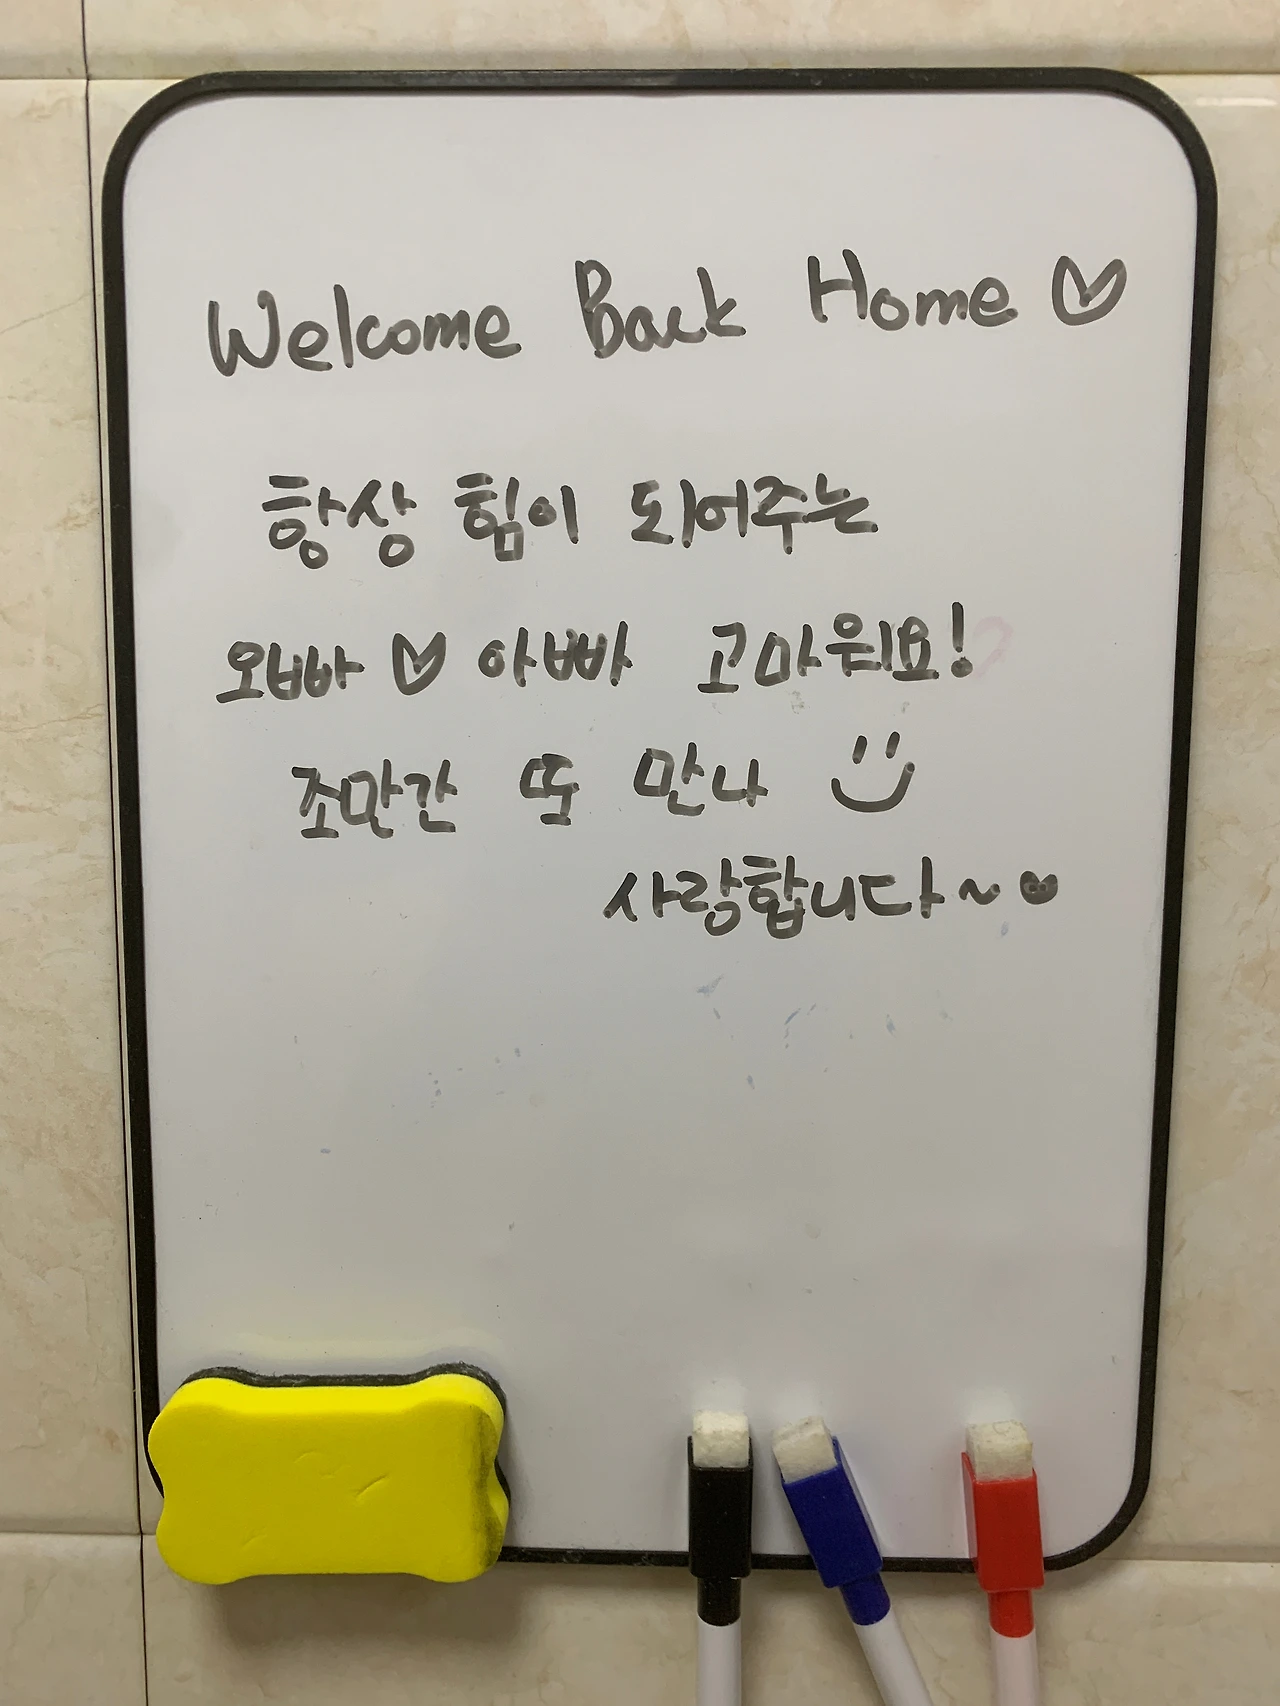 Welcome Back Home ♡
항상 힘이 되어주는
오빠 ♡ 아빠 고마워요!
조만간 또 만나 :)
사랑합니다~♥